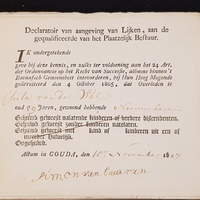 Declaratoir van aangeving van Lijken, aan de
gequalificeerde van het Plaatzelijk Bestuur.
IK ondergetekende
geve bij deze kennis, en zulks ter voldoening aan het 14 Art.
der Ordonnantie op het Recht van Successie, alomme binnen't
Bataafsch Gemeenebest intevorderen, bij Hun Hoog Mogende
geärresteerd den 4 October 1805, dat Overleden is
oud 29 Jaren, gewoond hebbende
Gehuwd geweest nalatende kinderen of verdere discendenten.
Gehuwd geweest zonder kinderen natelaten.
Gehuwd geweest met kind of kinderen uit een of
meerder Huwelijk.
Ongehuwd.
Actum in GOUDA, den 10e November 1807
Simon van Leeuwen